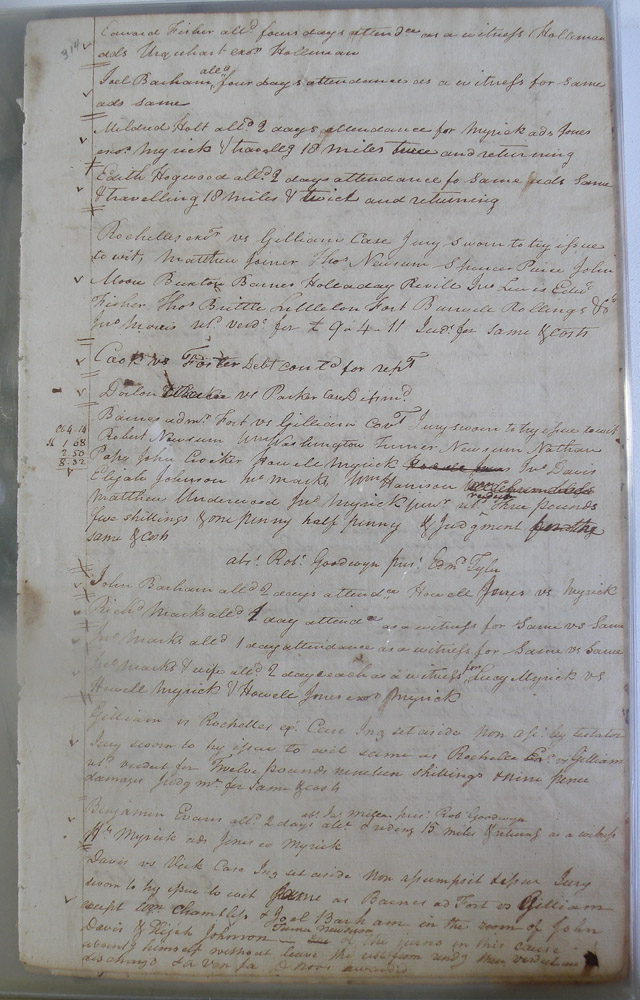 314
Edward Fisher alld. four days attendce as a witness Holleman
ads Urquhart exor Holleman
Joel Barham alld four days attendance as a witness for same
ads same
Mildred Holt alld 2 days attendance for Myrick ads Jones
exor Myrick & travellg 18 miles twice and returning
Edith Hogwood alld 2 days attendance fo same ads same
& travelling 18 miles & twice and returning
Rochelles exor vs Gilliam Case Jury sworn to try issue
to wit, Matthew Joiner Thos Newsum Spencer Peirce John
Moore Buxton Barnes Holladay Revill Jno Lewis Edwd
Fisher Thos Brittle Littleton Fort Burwell Rollings &
Jno Morris retd verdt for £ 9-4-11 Judt for same & costs
Cook vs Foster Debt contd for rept
vs Parker Case Dismd
Barnes admr Fort vs Gilliam Covt Jury sworn to try issue to wit
Robert Newsum Wm Washington Turner Newsum Nathan
1.68
2.50
8.32
Pope John Crocker Howell Myrick Jno Davis
Elijah Johnson Jno Marks Wm Harrison
Matthew Underwood Jno Myrick junr retd three pounds
five shillings & one penny half penny & Judgment
same & costs
abst Robt Goodwyn prest Edmd Tyler
John Barham alld 2 days attendce Howell Jones vs Myrick
Richd Marks alld 1 day attendce as a witness for Same vs Same
Jno Marks alld 1 day attendance as a witness for Same vs Same
Jno Marks & wife alld 2 days each as a witness for Lucy Myrick vs
Howell Myrick & Howell Jones exor Myrick
Gilliam vs Rochelles exr Case Inq set aside Non asst by testator
Jury sworn to try issue to wit same as Rochelle Exr vs Gilliam
retd verdict for Twelve pounds nineteen shillings & nine pence
damages Judgmt for same & costs
abst prest Robt Goodwyn
Benjamin Evans alld 2 days & riding 15 miles & returng as a witness
Myrick ads Jones exr Myrick
Davis vs Vick Case Inq set aside Non assumpsit & issue Jury
sworn to try issue to wit same as Barnes ad Fort vs Gilliam
except Wm Chambliss & Joel Barham in the room of John
Davis & Elijah Johnson Turner Newsum one of the jurors in this cause
absents himself without leave the rest from rendg their verdict are
discharged & a ven fa D novo awarded